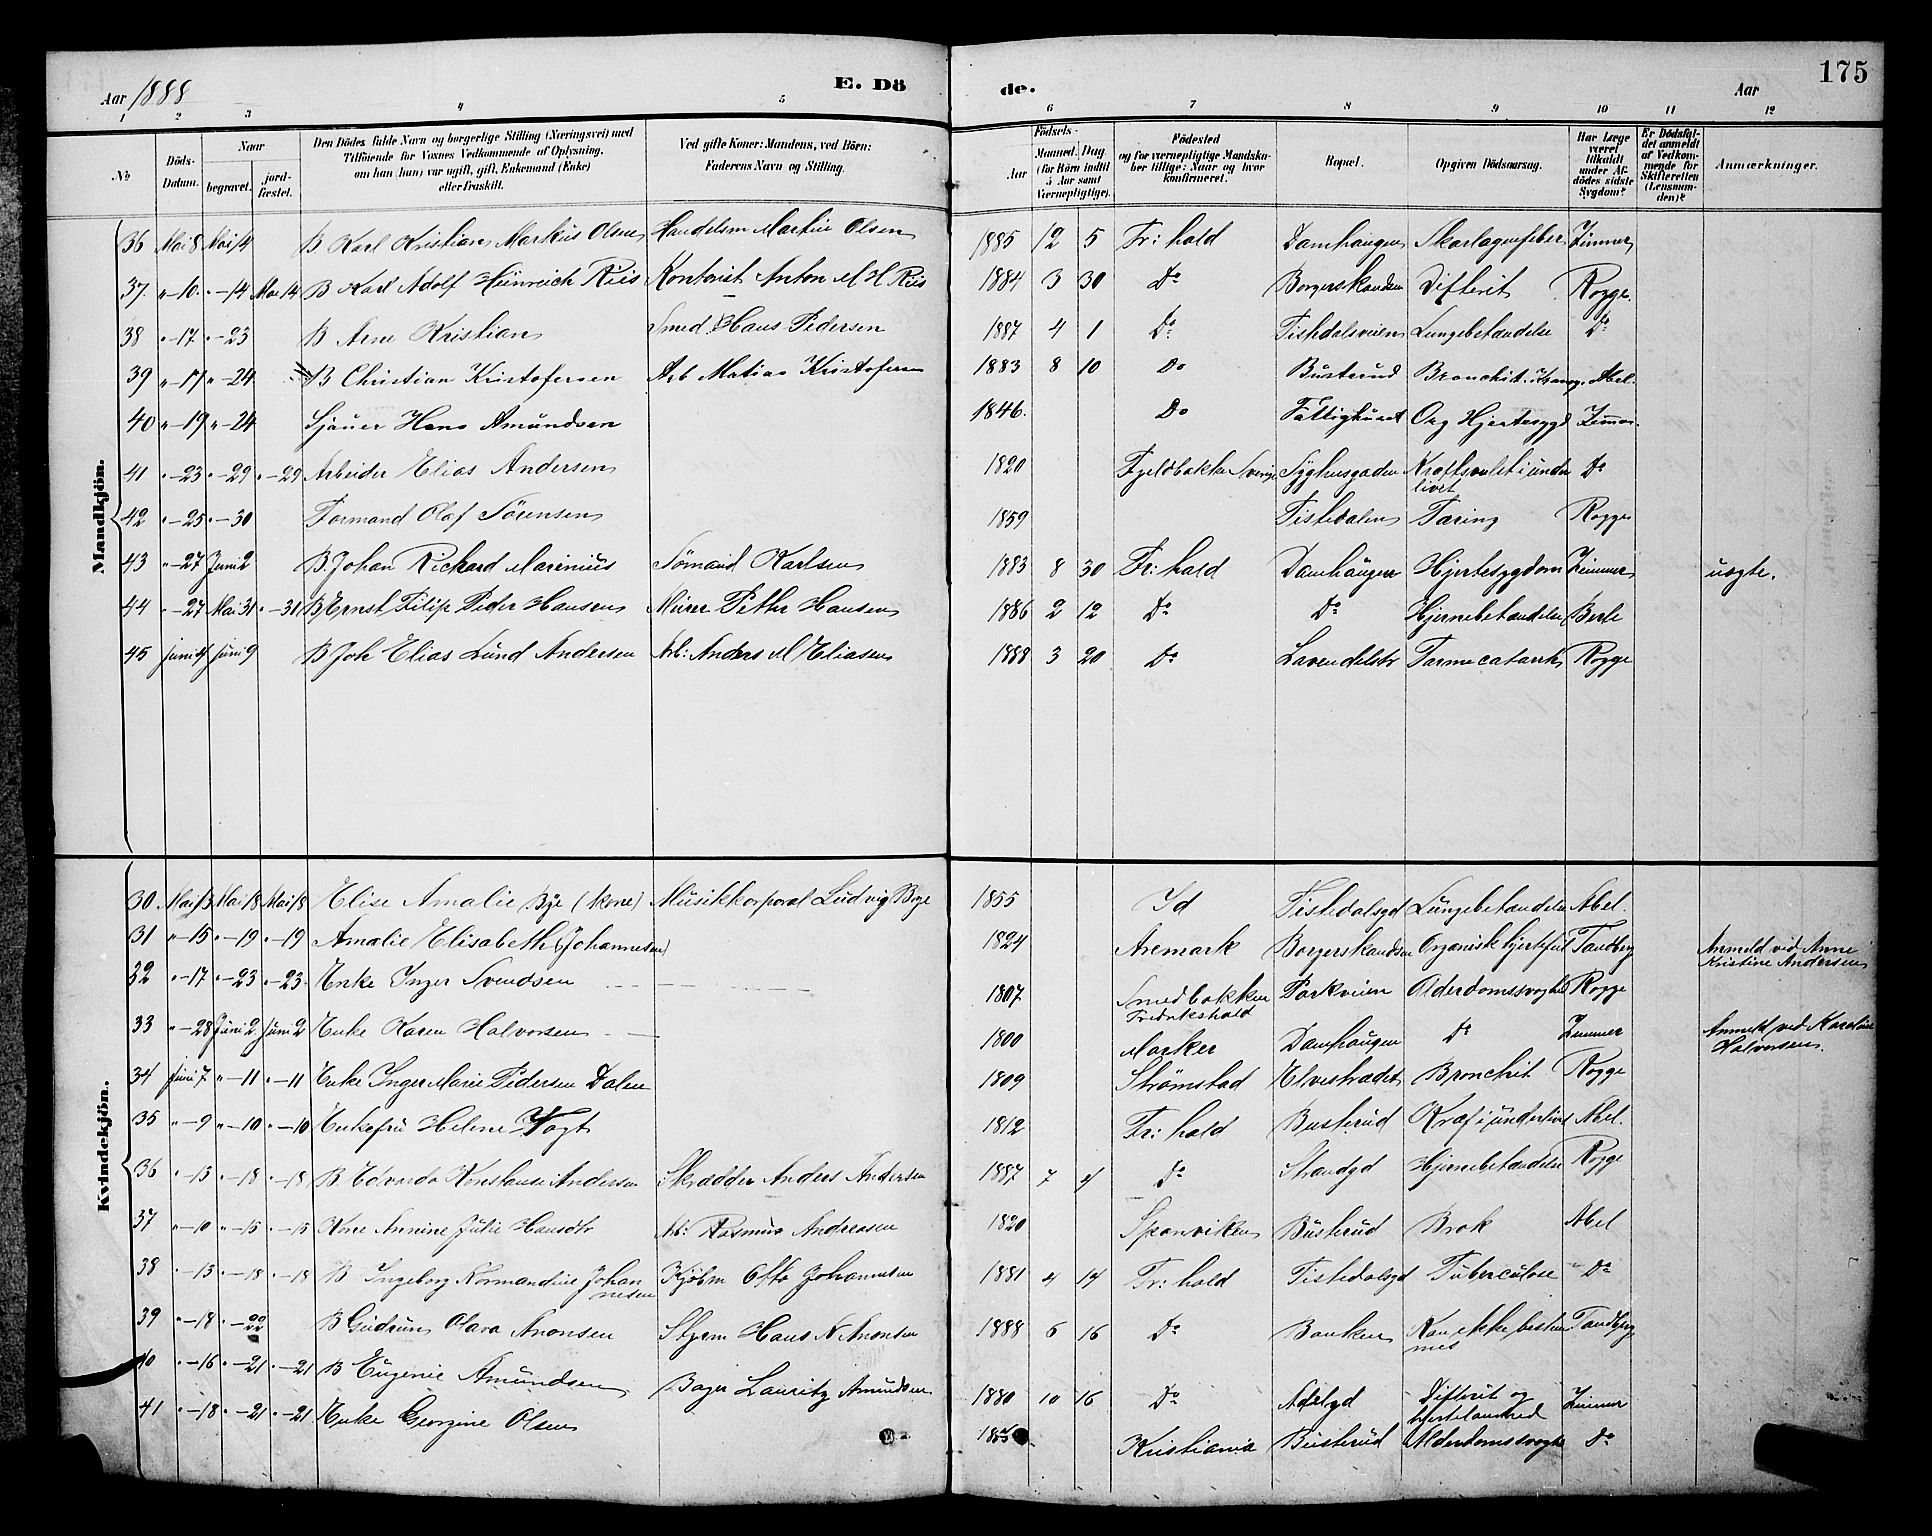 Aar 1888 E. Dö de. Aar 175
1 2 3 4 5 6 7 8 9 10 11 12
No Döds-Datum. Naar begravet. jordfæstet. Den Dödes fulde Navn og borgerlige Stilling (Næringsvei) med Tilföiende for Voxnes Vedkommende af Oplysning, om han (hun) var ugift, gift, Enkemand (Enke) eller fraskilt. Ved gifte Koner: Mandens, ved Börn: Faderens Navn og Stilling. Födsels- Aar Maaned. Dag (for Börn indtil 5 Aar samt Værnepligtige). Födested og for værnepligtige Mandskaber tillige: Naar og hvor konfirmeret. Bopæl. Opgiven Dödsaarsag. Har Læge været tilkaldt under Afdödes sidste Sygdom? Er Dödsfaldet anmeldt af Vedkommende for Skifteretten (Lensmanden)? Anmærkninger.
Mandkjön.
36 Mai 8 Mai 14 B Karl Kristian Markus Olsen Handelsm Martin Olsen 1885 12 5 Fr: hald Damhaugen Skarlagensfeber Zimmer
37. " -10. " -14 Mai 14 B Karl Adolf Heinreich Riis Kontorist Anton M H Riis 1884 3 30 Do Borgerskandsen Difterit Rogge.
38 " -17 " -23 B Arne Kristian Smed Hans Pedersen 1887 4 1 Do Tistedalsveien Lungebetændelse Do
39 " -17 " -24 B Christian Kristofersen Arb Matias Kristofersen 1883 8 10 Do Busterud Bronchit. Abel.
40 " -19 " -24 Sjauer Hans Amundsen 1846. Do Fattighuset Org Hjertesygd Zimmer
41 " -23 " -29 " -29 Arbeider Elias Andersen 1820 Fjeldbakka Sverige Syghusgaden Kræftsvulst i underlivet Do
42 " -25 " -30 Formand Olaf Sörensen 1859 Tistedalen Tæring Rogge
43 " -27 Juni 2 B. Johan Rickard Marinius Sömand Karlsen 1883 8 30 Fr: hald Damhaugen Hjertesygdom Zimmer uægte.
44 " -27 Mai 31 " -31 B Ernst Filip Peder Hansen Murer Petter Hansen 1886 2 12 Do Do Hjernebetændelse Berle
45 Juni 4 Juni 9 B Joh Elias Lund Andersen Arb: Anders M Eliasen 1888 3 20 Do Lavendelstr Tarmecatarrh Rogge
Kvindekjön.
30 Mai 13 Mai 18 Mai 18 Elise Amalie Bye (kone) Musikkorporal Ludvig Bye 1855 Id Tistedalsgd Lungebetændelse Abel.
31 " -15 " -19 " -19 Amalie Elisabeth (Johannesen) 1824 Aremark Borgerskandsen Organisk hjertefeil Tandberg Anmeldt ved Anne Kristine Andersen
32 " -17 " -23 " -23 Enke Inger Svendsen 1807 Smedbakken Fredrikshald Parkveien Alderdomssvaghed Rogge
33 " -28 Juni 2. Juni 2 Enke Karen Halvorsen 1800 Marker Damhaugen Do Zimmer Anmeldt ved Karoline Halvorsen.
34 Juni 7 " -11 " -11 Enke Inger Marie Pedersen Dalen 1809 Strömstad Elvestrædet Bronchit Rogge
35 " -9 " -10 " -10 Enkefru Helene Vogt 1812 Fr: hald Busterud Kræf i underlivet Abel.
36 " -13 " -18 " -18 B. Edvarda Konstanse Andersen Skrædder Anders Andersen 1887 7 4 Do Strandgd Hjernebetændelse Rogge
37 " -10 " -15 " -15 Kone Annine Julie Hansdtr Arb: Rasmus Andreasen 1820 Sponviken Busterud Brok Abel
38 " -13 " -18 " -18 B Ingeborg Normandine Johannesen Kjöbm Otto Johannesen 1881 4 14 Fr: hald Tistedalsgd Tuberculose Do
39 " -18 " -22 B Gudrun Olava Anonsen Styrm Hans N Anonsen 1888 6 16 Do Banken Kan ikke bestemmes Tandberg
40 " -16 " -21 " -21 B Eugenie Amundsen Bager Lauritz Amundsen 1880 10 16 Do Adelgd Difterit og Zimmer
41 " -18 " -21 " -21 Enke Georgine Olsen Kristiania Busterud Alderdomssvaghed Do